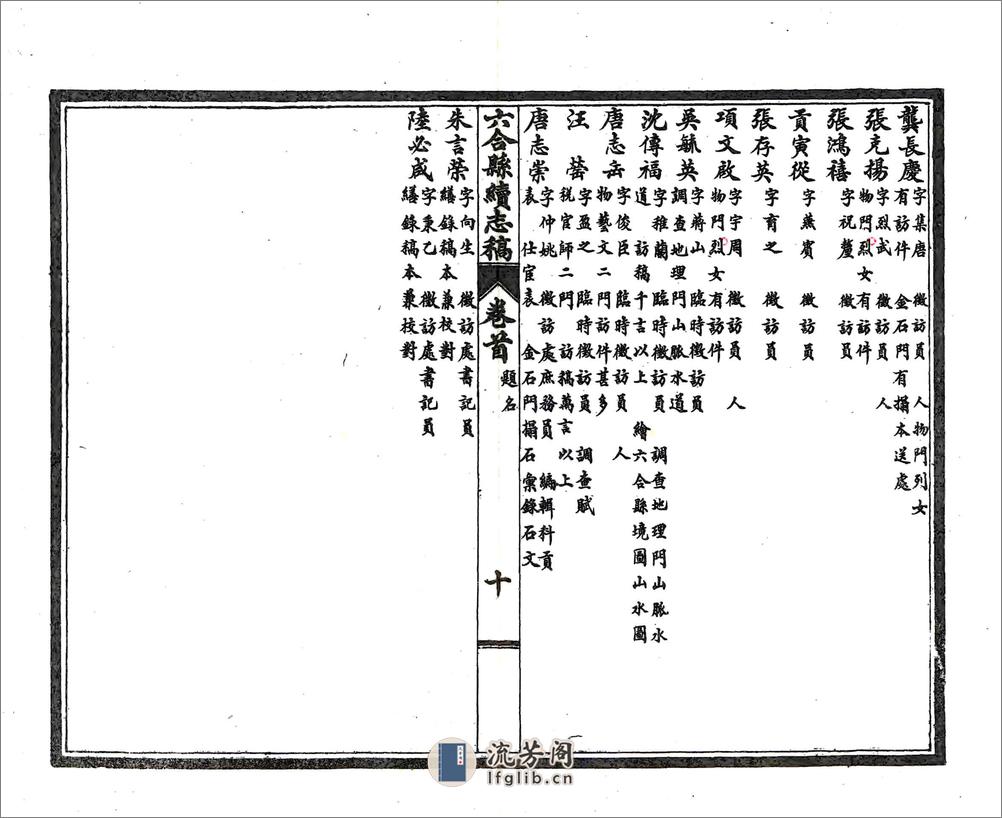 龔長慶 字集唐 徵訪員 人物門列女
有訪件 金石門有搨本送處
張克揚 字烈武 徵訪員 人
物門烈女有訪件
張鴻禧 字祝釐 徵訪員
貢寅從 字燕賓 徵訪員
張存英 字育之 徵訪員
項文啟 字宇周 徵訪員 人
物門烈女有訪件
吳毓英 字蔣山 臨時徵訪員
調查地理門山脈水道
沈傳福 字雅蘭 臨時徵訪員 調查地理門山脈水
道 訪稿千言以上 繪六合縣境圖山水圖
唐志岳 字俊臣 臨時徵訪員 人
物藝文二門訪件甚多
汪 字盈之 臨時徵訪員 調查賦
稅官師二門 訪稿萬言以上
唐志崇 字仲姚 徵訪處庶務員 編輯科貢
表 仕宦表 金石門搨石彙錄石文
六合縣續志稿 卷首 題名 十
朱言榮 字向生 徵訪處書記員
繕錄稿本兼校對
陸必成 字秉乙 徵訪處書記員
繕錄稿本兼校對
流芳阁
lfglib.cn